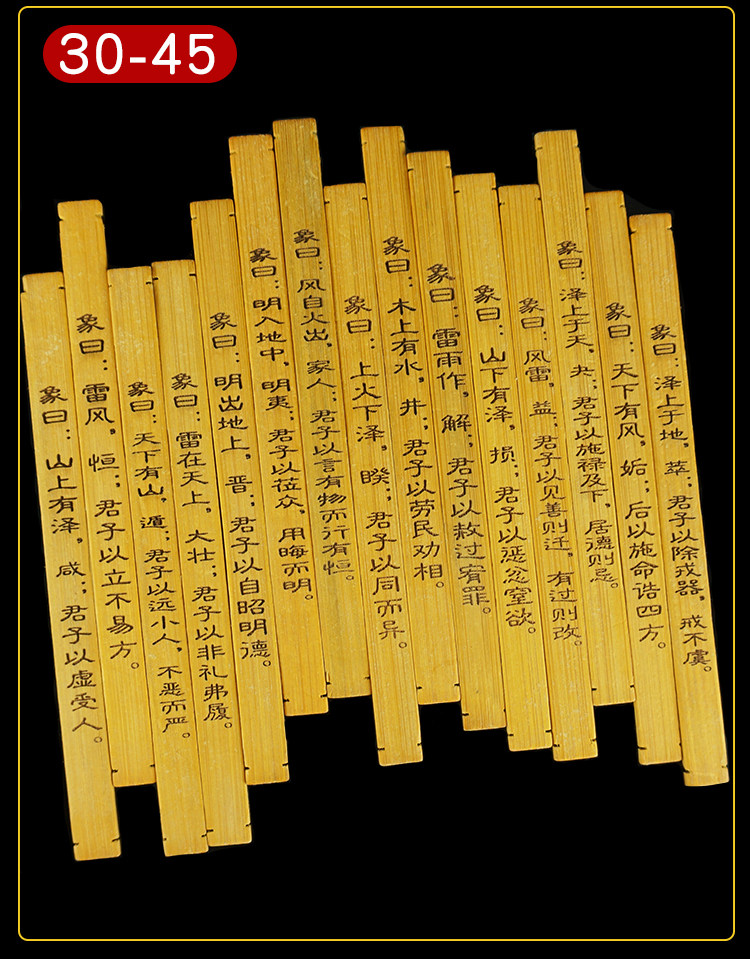 30-45
象曰：山上有泽，咸；君子以虚受人。
象曰：雷风，恒；君子以立不易方。
象曰：天下有山，遁；君子以远小人，不恶而严。
象曰：雷在天上，大壮；君子以非礼弗履。
象曰：明出地上，晋；君子以自昭明德。
象曰：明入地中，明夷；君子以莅众，用晦而明。
象曰：风自火出，家人；君子以言有物而行有恒。
象曰：上火下泽，睽；君子以同而异。
象曰：木上有水，井；君子以劳民劝相。
象曰：雷雨作，解；君子以赦过宥罪。
象曰：山下有泽，损；君子以惩忿窒欲。
象曰：风雷，益；君子以见善则迁，有过则改。
象曰：泽上于天，夬；君子以施禄及下，居德则忌。
象曰：天下有风，姤；后以施命诰四方。
象曰：泽上于地，萃；君子以除戎器，戒不虞。